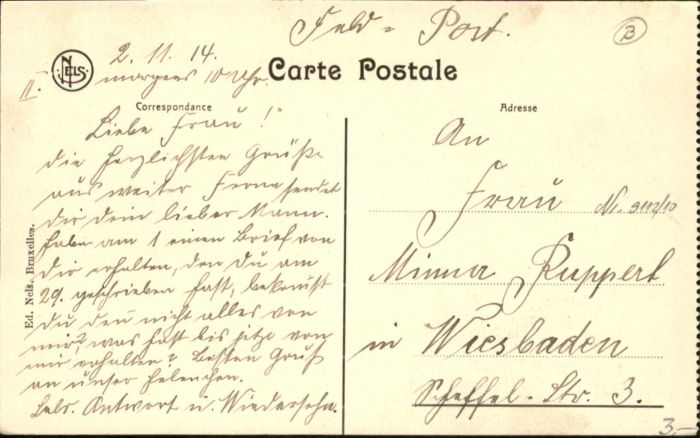 Feld-Post.
B
NELS
2. 11. 14.
II. morgens 10 Uhr.
Carte Postale
Correspondance
Adresse
Liebe Frau!
die herzlichsten Grüße
aus weiter Ferne sendet
dir dein lieber Mann.
habe am 1 einen Brief von
dir erhalten, den du am
29. geschrieben hast, bekomst
du den nicht alles von
mir, was hast bis jetzt von
mir erhalten? besten Gruß
an unser Helenchen.
Antwort u. Wiedersehn.
Ed. Nels, Bruxelles.
An
Frau
Minna Ruppert
in Wiesbaden
Scheffel-Str. 3.
3.-